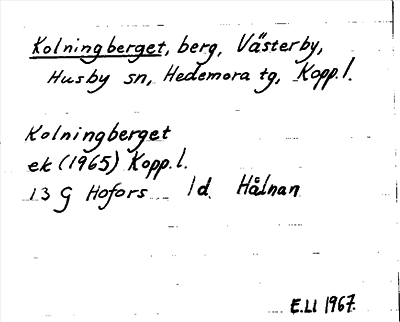 Kolningberget, berg, Västerby,
Husby sn, Hedemora tg, Kopp.l.
Kolningberget
ek (1965) Kopp.l.
13 G Hofors 1d. Hålnan
E.Ll 1967.